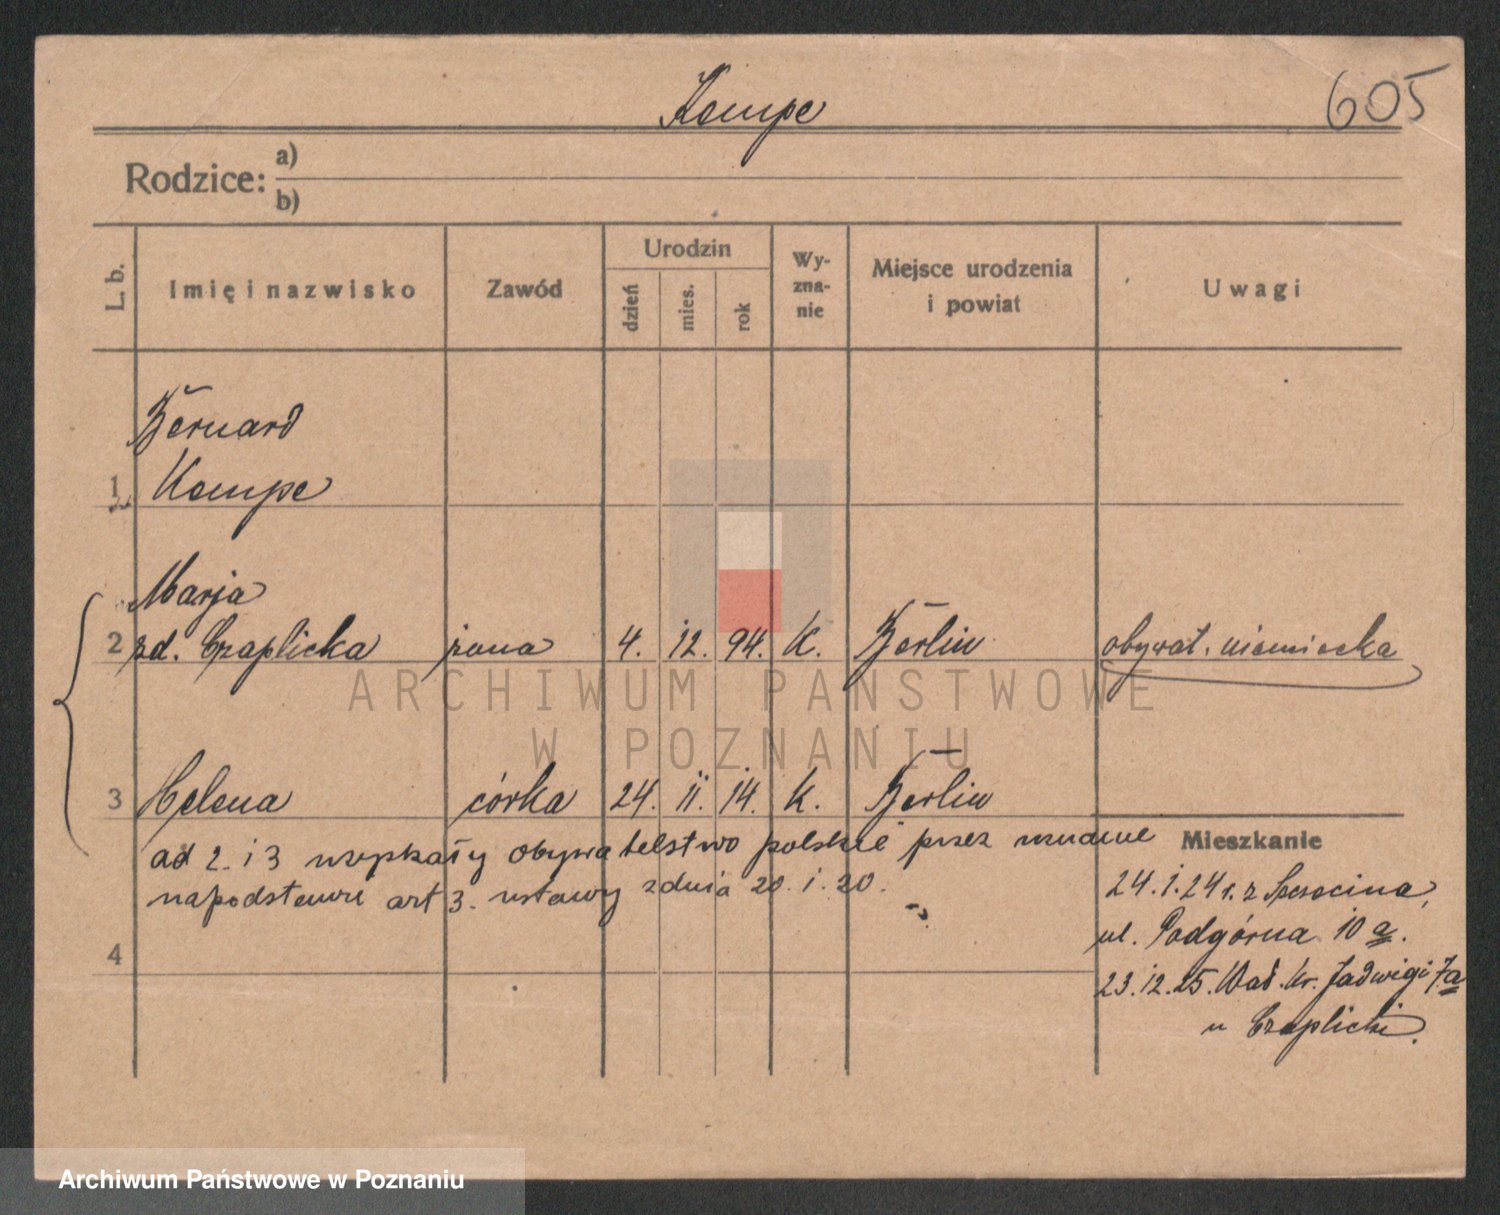 Kempe
605
Rodzice: a)
b)
L. b.
Imię i nazwisko
Zawód
Urodzin
dzień
mies.
rok
Wy-
zna-
nie
Miejsce urodzenia
i powiat
Uwagi
Bernard
1 Kempe
Marja
2 zd. Czaplicka żona 4. 12. 94. K. Berlin obywat. niemiecka
3 Helena córka 24. 11. 14. K. Berlin
ad 2. i 3 uzyskały obywatelstwo polskie przez uznanie
na podstawie art 3. ustawy z dnia 20. 1. 20.
4
Mieszkanie
24.1.24 r. z
ul. Podgórna 10 a.
23.12.25. Wał. Kr. Jadwigi 7a
u Czaplicki.
ARCHIWUM PAŃSTWOWE
W POZNANIU
Archiwum Państwowe w Poznaniu